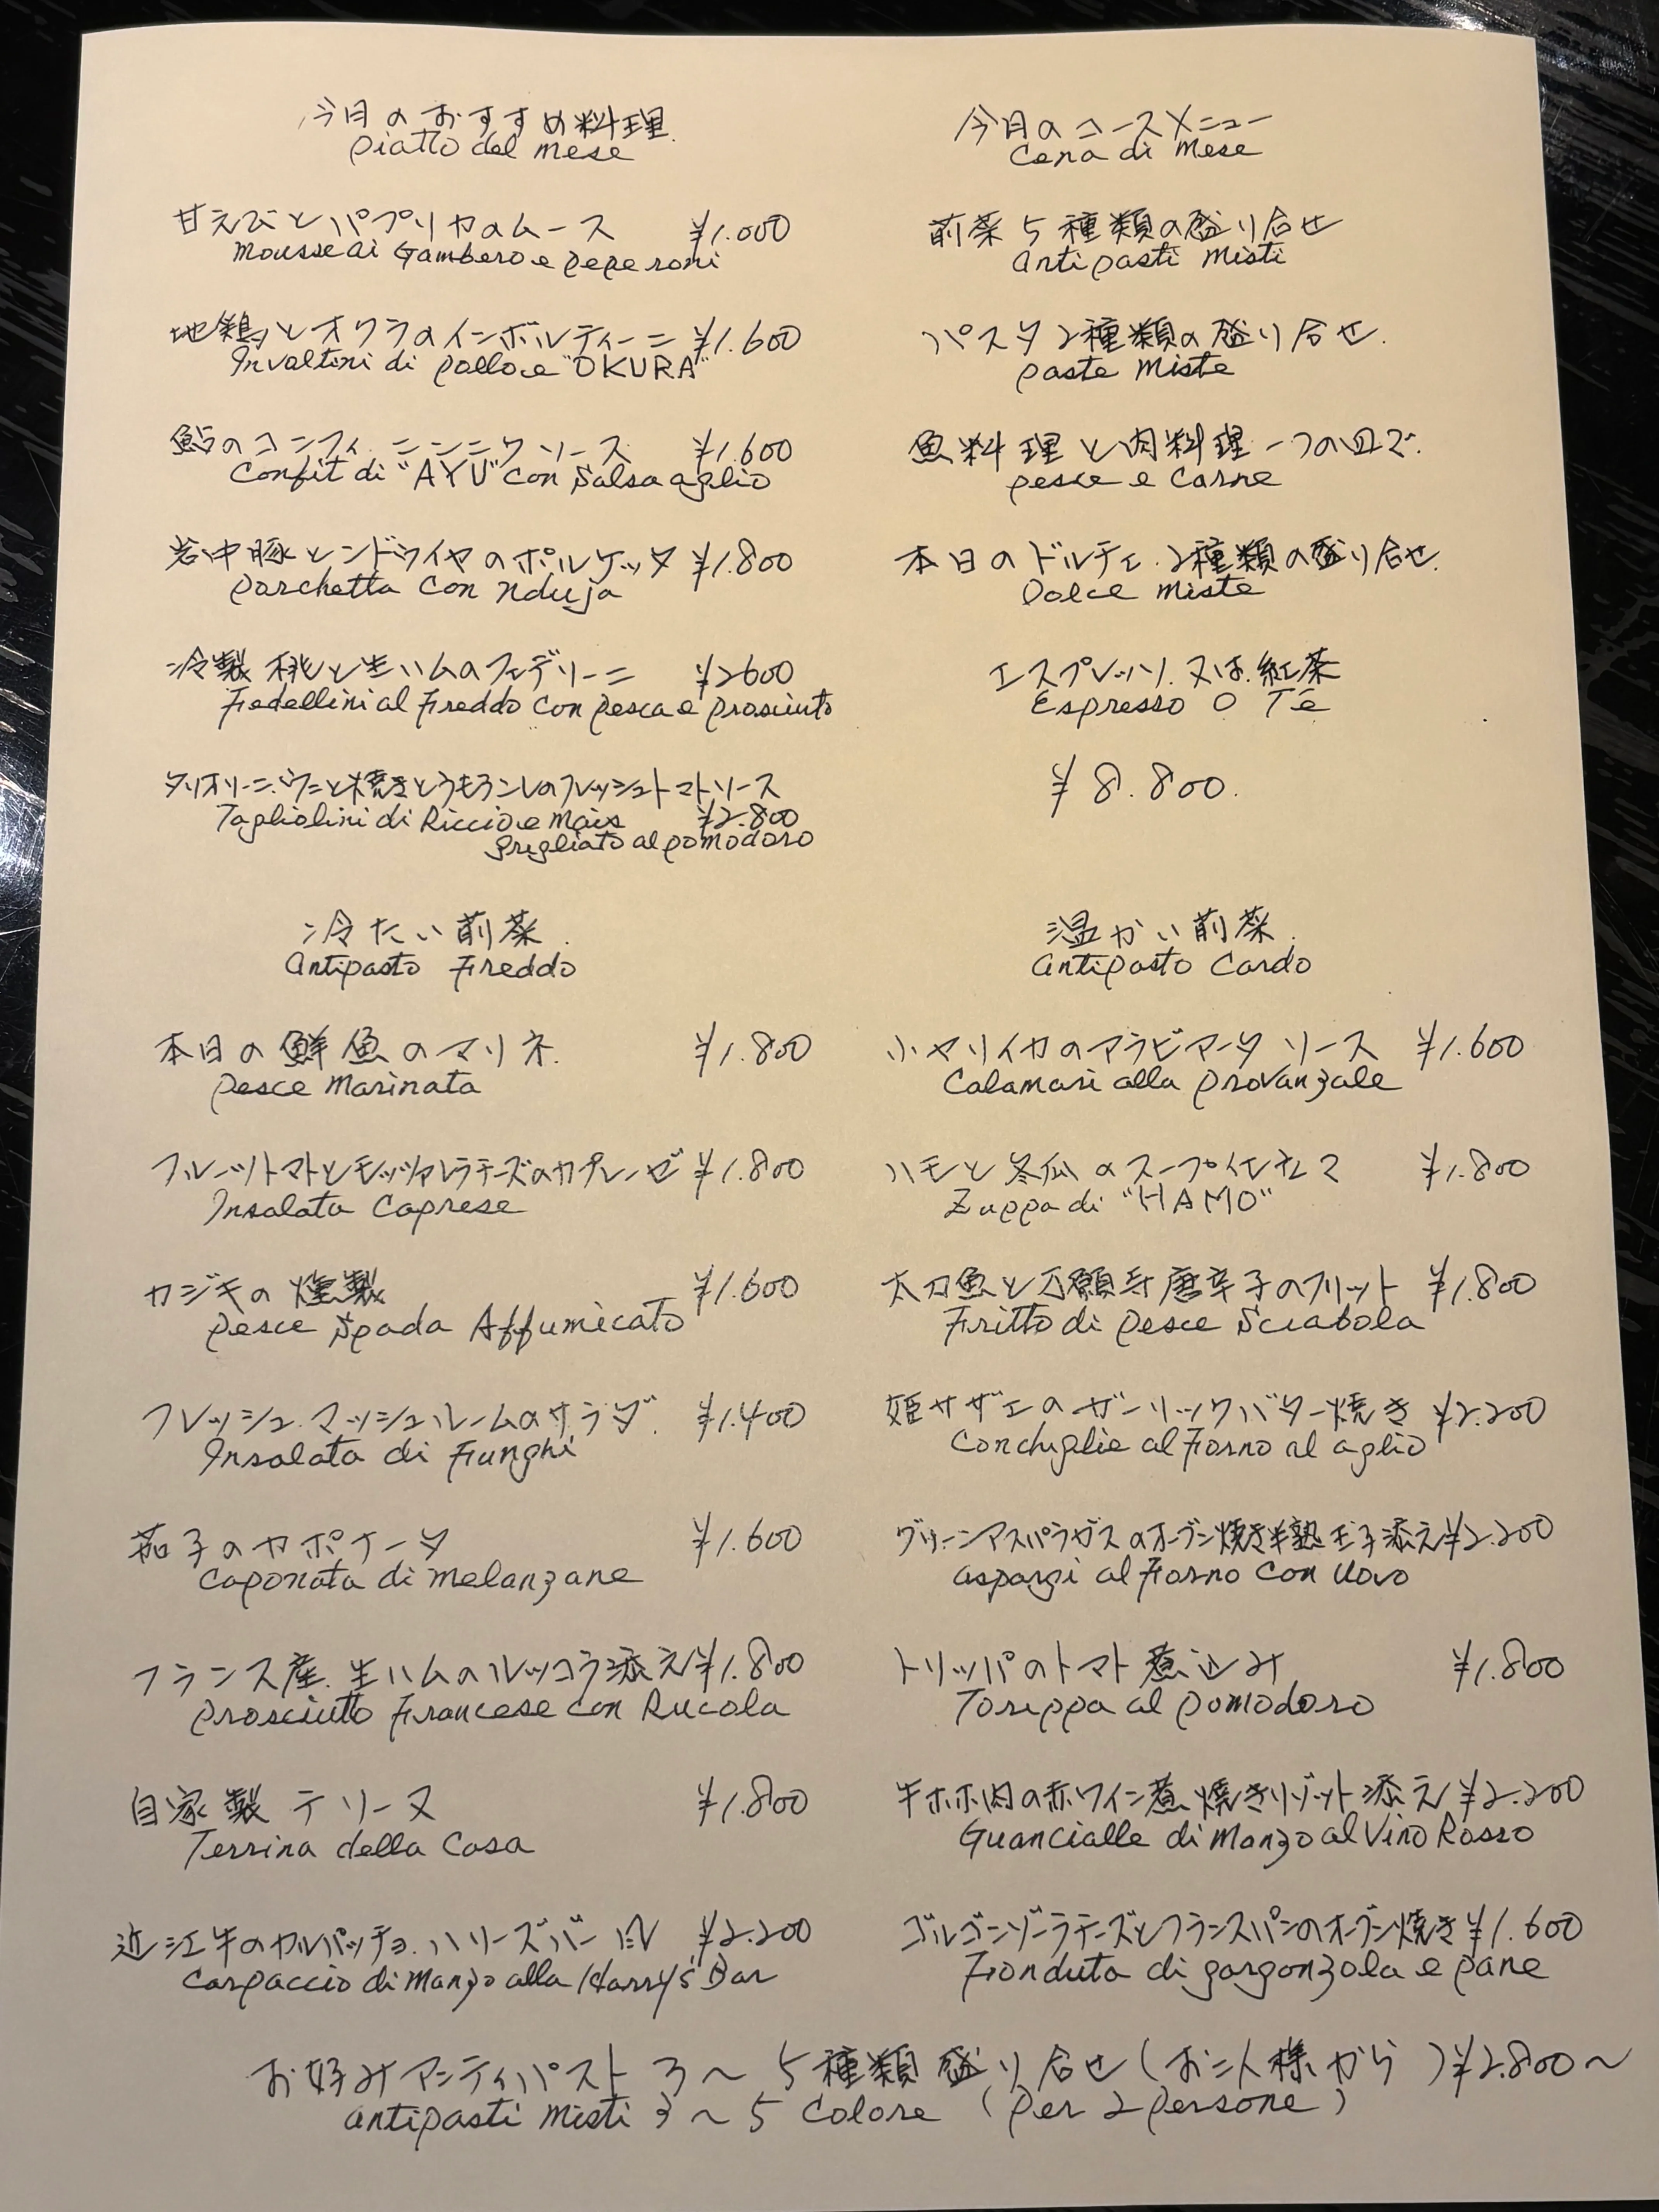 今日のおすすめ料理
piatto del mese
甘えびとパプリカのムース ¥1.000
Mousse di Gambero e peperoni
地鶏とオクラのインボルティーニ ¥1.600
Involtini di pollo e "OKURA"
鮎のコンフィ ニンニクソース ¥1.600
Confit di "AYU" con Salsa aglio
岩中豚とンドゥイヤのポルケッタ ¥1.800
porchetta con nduja
冷製 桃と生ハムのフェデリーニ ¥2600
Fedellini al Freddo con pesca e prosciuto
タリオリーニ ウニと焼きとうもろこしのフレッシュトマトソース
Tagliolini di Riccio e Mais ¥2.800
grigliato al pomodoro
今日のコースメニュー
Cena di Mese
前菜5種類の盛り合せ
Antipasti Misti
パスタ2種類の盛り合せ.
paste Miste
魚料理と肉料理一つの皿で.
pesce e Carne
本日のドルチェ 2種類の盛り合せ.
Dolce Miste
エスプレッソ.又は.紅茶
Espresso O Té
¥8.800.
冷たい前菜.
Antipasto Freddo
本日の鮮魚のマリネ. ¥1.800
Pesce Marinata
フルーツトマトとモッツァレラチーズのカプレーゼ ¥1.800
Insalata Caprese
カジキの燻製 ¥1.600
Pesce Spada Affumicato
フレッシュ.マッシュルームのサラダ. ¥1.400
Insalata di Funghi
茄子のカポナータ ¥1.600
Caponata di Melanzane
フランス産.生ハムのルッコラ添え ¥1.800
Prosciutto Francese con Rucola
自家製テリーヌ ¥1.800
Terrina della Casa
近江牛のカルパッチョ.ハリーズバー風 ¥2.200
Carpaccio di Manzo alla Harry's Bar
温かい前菜.
Antipasto Cardo
小ヤリイカのアラビアータソース ¥1.600
Calamari alla provanzale
ハモと冬瓜のスープ仕立て ¥1.800
Zuppa di "HAMO"
太刀魚と万願寺唐辛子のフリット ¥1.800
Fritto di Pesce Sciabola
姫サザエのガーリックバター焼き ¥2.200
Conchiglie al Forno al aglio
グリーンアスパラガスのオーブン焼き半熟玉子添え ¥2.200
asparagi al Forno con Uovo
トリッパのトマト煮込み ¥1.800
Torippa al pomodoro
牛ホホ肉の赤ワイン煮 焼きリゾット添え ¥2.200
Guancialle di Manzo al Vino Rosso
ゴルゴンゾーラチーズとフランスパンのオーブン焼き ¥1.600
Fonduta di gorgonzola e pane
お好みアンティパスト 3～5種類盛り合せ(お二人様から) ¥2.800～
antipasti misti 3～5 Colore (per 2 persone)